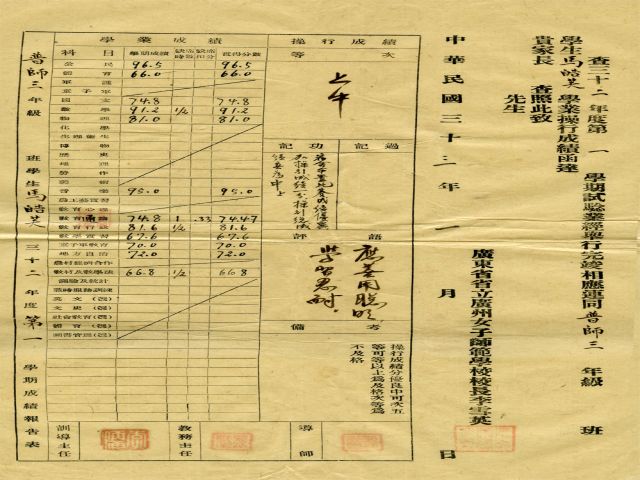 查三十二年度第一學期試驗業經舉行完竣相應連同普師三年級 班
學生馬皓英學業操行成績函達
貴家長 查照此致
先生
廣東省省立廣州女子師範學校校長李雪英
中華民國三十三年一月 日
操行成績
等次
上
功記
過記
評語
應善用聰明
學習忍耐
備考
操行成績分優良中可次五
等可等以上為及格次等為
不及格
導師
教務主任
訓導主任
學業成績
科目 學期成績 缺席時數 缺席扣分 實得分數
公民 96.5 96.5
體育 66.0 66.0
軍訓
童子軍
國文 74.8 74.8
數學 91.2 1/2 91.2
物理 81.0 1/2 81.0
化學
生理衛生
博物
歷史
地理
勞作
美術
音樂 95.0 95.0
農工藝實習
教育心理
教育 74.8 1 .33 74.47
教育行政 81.6 1/2 81.6
教學實習 67.6 67.6
童子軍教育 70.0 70.0
地方自治 72.0 72.0
農村經濟合作
教材及教學法 66.8 1/2 66.8
測驗及統計
戰時服務訓練
英文(選)
文史(選)
社會教育(選)
體育(選)
圖書管理(選)
普師三年級 班學生馬皓英 三十二年度第一學期成績報告表